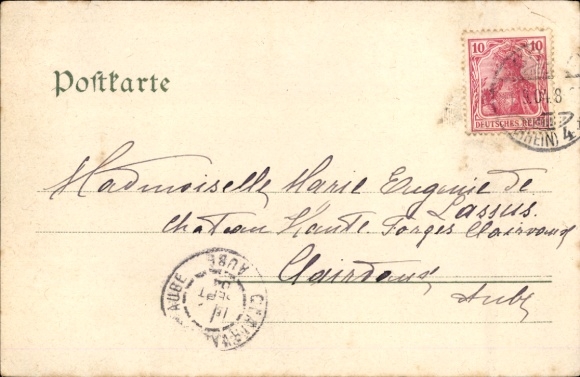 Postkarte
10 10
DEUTSCHES REICH
.04.8
(RHEIN)
4
Mademoiselle Marie Eugenie de
Lassus.
Château Haute Forges Clairvaux
Clairvaux
Aube
CLAIRVAUX AUBE
SEPT
04